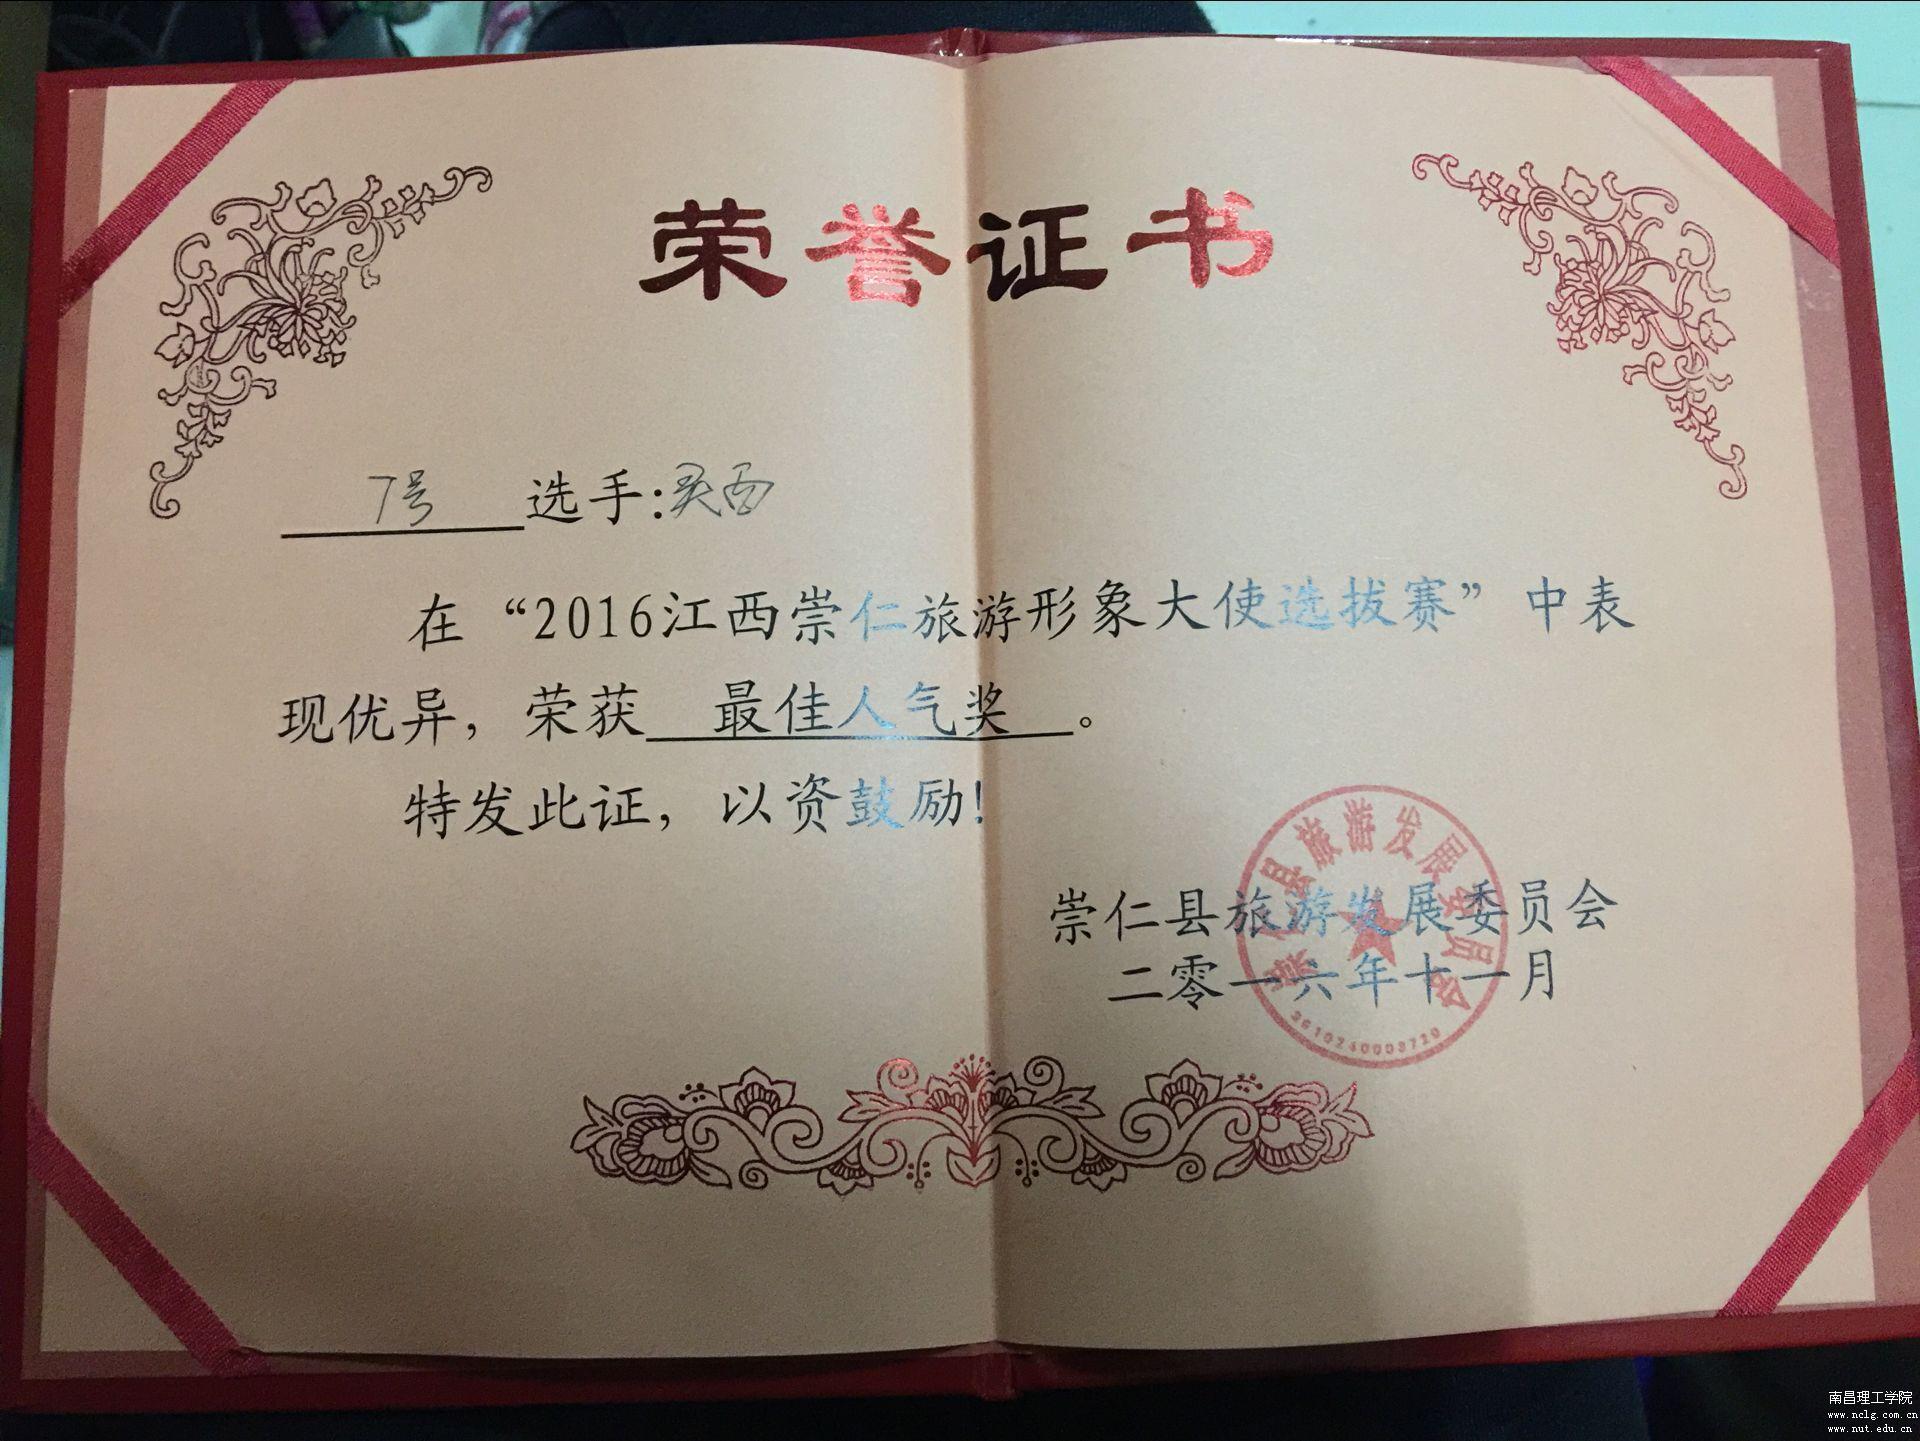 荣誉证书
7号 选手:
在“2016江西崇仁旅游形象大使选拔赛”中表
现优异，荣获 最佳人气奖 。
特发此证，以资鼓励!
崇仁县旅游发展委员会
二零一六年十一月
崇仁县旅游发展委员会
3610240003720
南昌理工学院
www.nclg.com.cn
www.nut.edu.cn